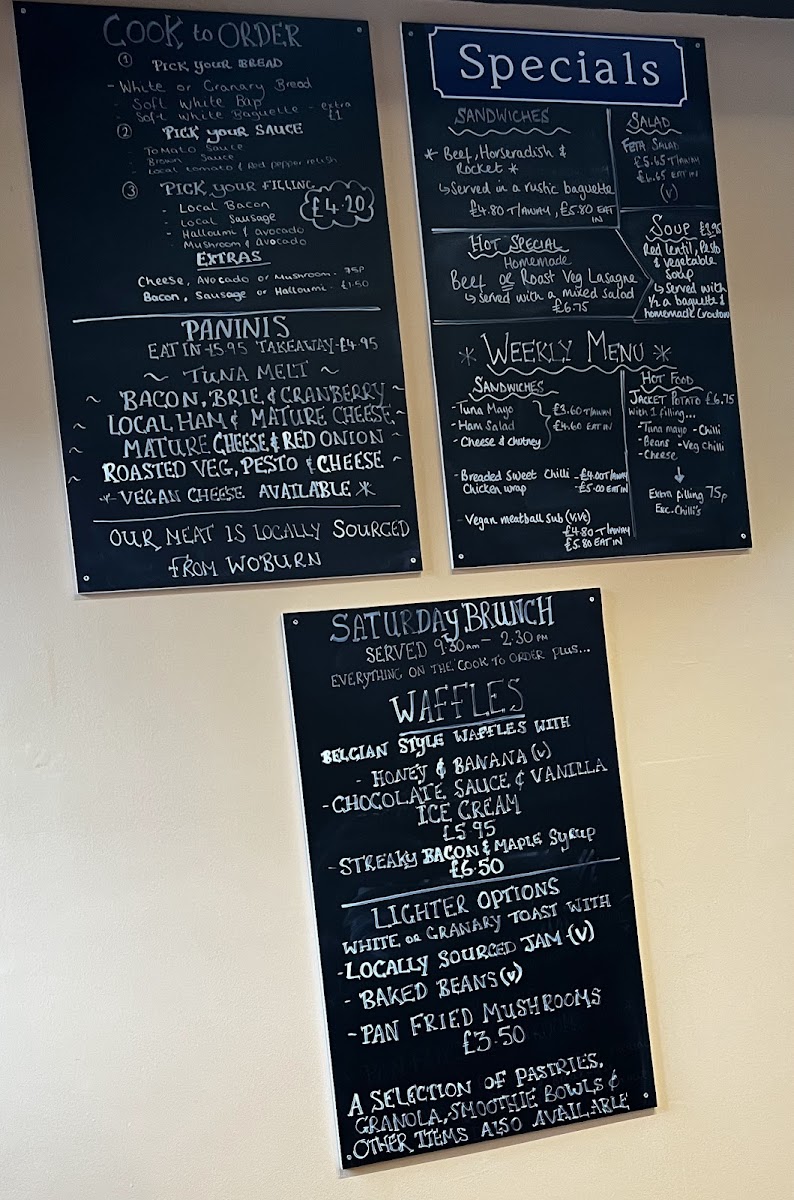 COOK to ORDER
① PICK YOUR BREAD
- White or Granary Bread
- Soft White Bap
- Soft White Baguette - extra £1
② PICK YOUR SAUCE
- Tomato Sauce
- Brown Sauce
- Local tomato & Red pepper relish
③ PICK YOUR FILLING
£4.20
- Local Bacon
- Local Sausage
- Halloumi & avocado
- Mushroom & avocado
EXTRAS
Cheese, Avocado or Mushroom - 75p
Bacon, Sausage or Halloumi - £1.50
PANINIS
EAT IN - £5.95 TAKEAWAY - £4.95
~ TUNA MELT ~
~ BACON, BRIE, & CRANBERRY ~
~ LOCAL HAM & MATURE CHEESE ~
~ MATURE CHEESE & RED ONION ~
~ ROASTED VEG, PESTO & CHEESE ~
* VEGAN CHEESE AVAILABLE *
OUR MEAT IS LOCALLY SOURCED
FROM WOBURN
Specials
SANDWICHES
* Beef, Horseradish &
Rocket *
↳ Served in a rustic baguette
£4.80 T/AWAY, £5.80 EAT
IN
SALAD
FETA SALAD
£5.65 T/AWAY
£6.65 EAT IN
(V)
HOT SPECIAL
Homemade
Beef or Roast Veg Lasagne
↳ served with a mixed salad
£6.75
SOUP £3.95
Red lentil, Pesto
& vegetable
Soup
↳ Served with
1/2 a baguette &
homemade Croutons
* WEEKLY MENU *
SANDWICHES
- Tuna Mayo
- Ham Salad
- Cheese & chutney
£3.60 T/AWAY
£4.60 EAT IN
- Breaded Sweet Chilli - £4.00 T/AWAY
Chicken wrap - £5.00 EAT IN
- Vegan meatball sub (V,VE)
£4.80 T/AWAY
£5.80 EAT IN
HOT FOOD
JACKET POTATO £6.75
with 1 filling...
- Tuna mayo - Chilli
- Beans - Veg Chilli
- Cheese
↓
Extra filling 75p
Exc. Chilli's
SATURDAY BRUNCH
SERVED 9:30 am - 2.30 PM
EVERYTHING ON THE COOK TO ORDER plus...
WAFFLES
BELGIAN STYLE WAFFLES WITH
- HONEY & BANANA (V)
- CHOCOLATE SAUCE & VANILLA
ICE CREAM
£5.95
- STREAKY BACON & MAPLE SYRUP
£6.50
LIGHTER OPTIONS
WHITE or GRANARY TOAST WITH
- LOCALLY SOURCED JAM - (V)
- BAKED BEANS (V)
- PAN FRIED MUSHROOMS
£3.50
A SELECTION OF PASTRIES,
GRANOLA, SMOOTHIE BOWLS &
OTHER ITEMS ALSO AVAILABLE